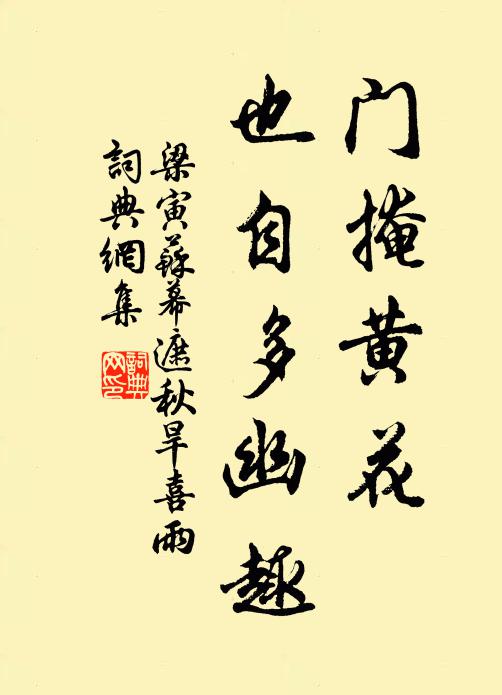 门掩黄花
也自多幽趣
梁寅蘇幕遮秋旱喜雨
詞典網集
詞典网印